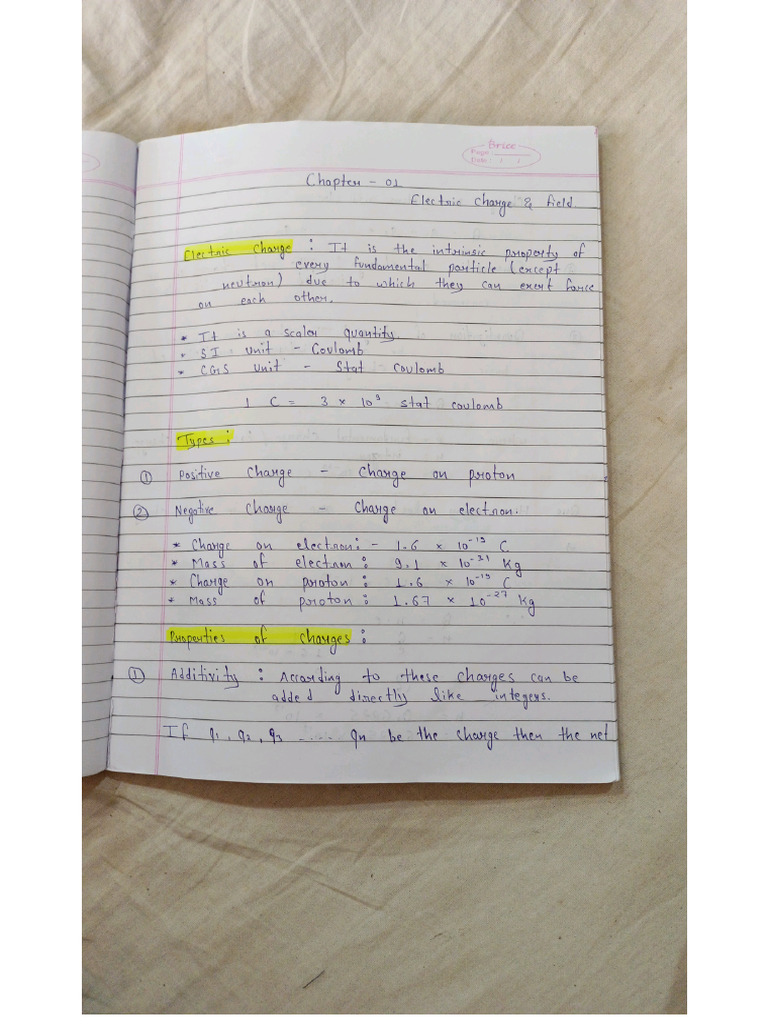 Brice
Page:
Date: / /
Chapter - 01
Electric Charge & field.
Electric Charge : It is the intrinsic property of
every fundamental particle (except
neutron) due to which they can exert force
on each other.
* It is a scalar quantity.
* SI Unit - Coulomb
* CGS Unit - Stat Coulomb
1 C = 3 × 10⁹ stat coulomb
Types :
① Positive Charge - Charge on proton
② Negative Charge - Charge on electron.
* Charge on electron : - 1.6 × 10⁻¹⁹ C
* Mass of electron : 9.1 × 10⁻³¹ Kg
* Charge on proton : 1.6 × 10⁻¹⁹ C
* Mass of proton : 1.67 × 10⁻²⁷ Kg
Properties of charges :
① Additivity : According to these charges can be
added directly like integers.
If q₁, q₂, q₃ ..... qn be the charge then the net